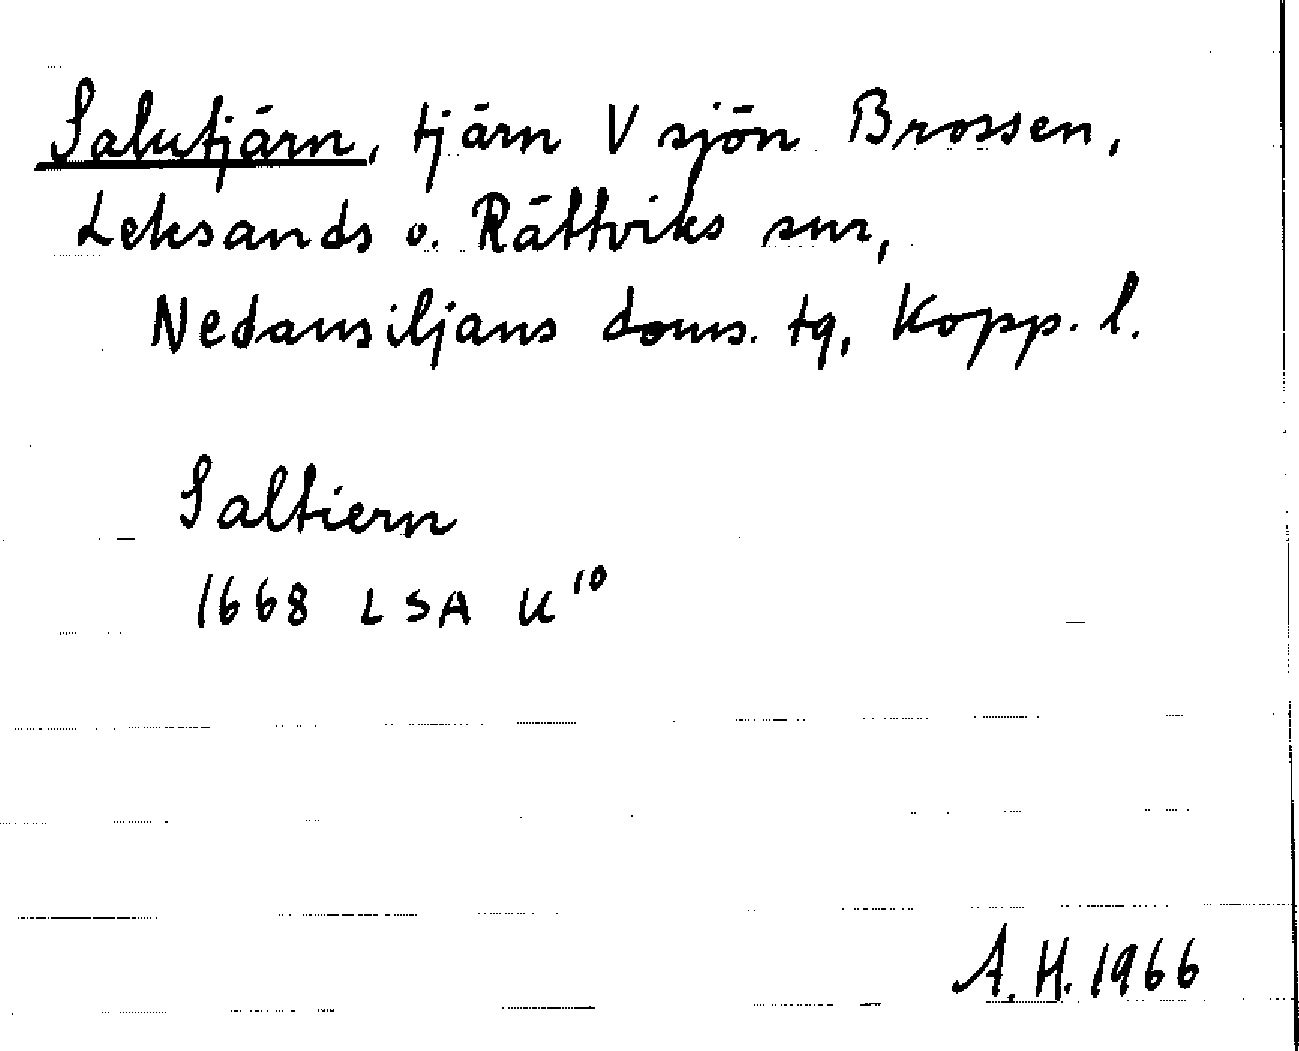 Salutjärn, tjärn V sjön Brossen,
Leksands o. Rättviks snr,
Nedansiljans doms. tg, Kopp. l.
Saltiern
1668 LSA U¹⁰
A. H. 1966